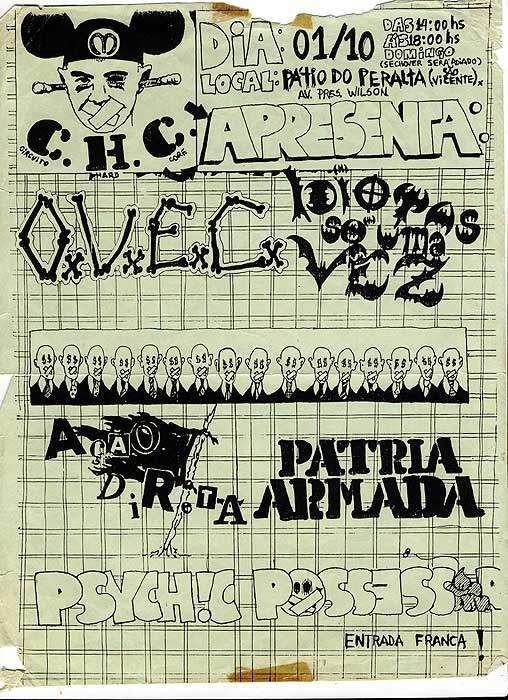 DIA: 01/10
DAS 14:00 hs
ÀS 18:00 hs
DOMINGO
(SE CHOVER SERÁ ADIADO)
LOCAL: PÁTIO DO PERALTA (SÃO VICENTE).
AV. PRES. WILSON
C. H. C.
CIRCUITO HARD CORE
APRESENTA:
O.V.E.C.
IDIOTAS
SÓ UMA
VEZ
AÇÃO
DIRETA
PATRIA
ARMADA
PSYCH!C POSSESSOR
ENTRADA FRANCA!